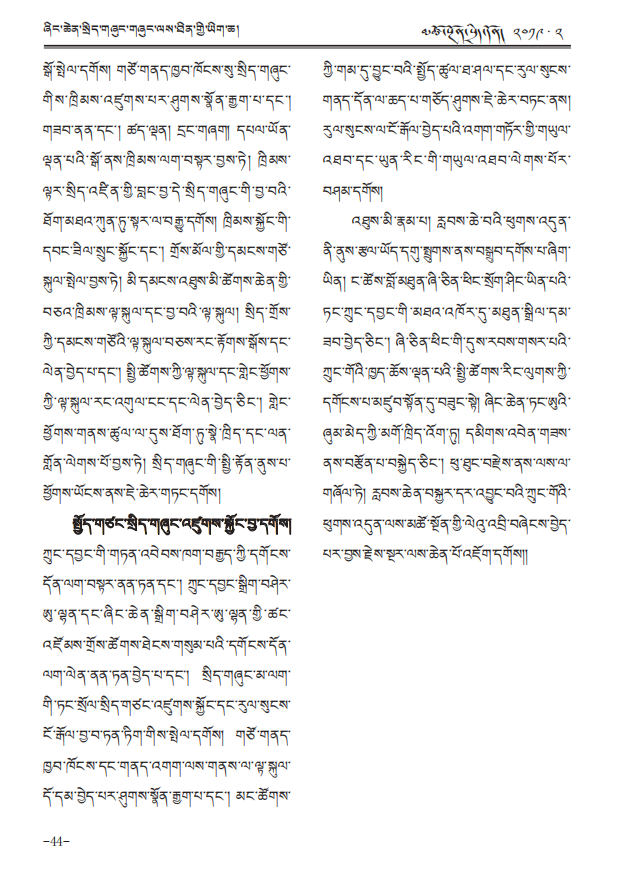 ཞིང་ཆེན་སྲིད་གཞུང་གཞུང་ལས་ཐིན་གྱི་ཡིག་ཆ།
༢༠༡༩ · ༢
སྒོ་སྤེལ་དགོས། གཙོ་གནད་ཁྱབ་ཁོངས་སུ་སྲིད་གཞུང་
གིས་ཁྲིམས་འཛུགས་པར་ཤུགས་སྣོན་རྒྱག་པ་དང་།
གཟབ་ནན་དང་། ཚད་ལྡན། དྲང་གཞག། དཔལ་ཡོན་
ལྡན་པའི་སྒོ་ནས་ཁྲིམས་ལག་བསྟར་བྱས་ཏེ། ཁྲིམས་
ལྟར་སྲིད་འཛིན་གྱི་བླང་བྱ་དེ་སྲིད་གཞུང་གི་བྱ་བའི་
ཐོག་མཐའ་ཀུན་ཏུ་སྟར་ལ་བརྒྱུ་དགོས། ཁྲིམས་སྐྱོང་གི་
དབང་ཟིལ་སྲུང་སྐྱོང་དང་། གྲོས་མོལ་གྱི་དམངས་གཙོ་
སྐུལ་སྤེལ་བྱས་ཏེ། མི་དམངས་འཐུས་མི་ཚོགས་ཆེན་གྱི་
བཅའ་ཁྲིམས་ལྟ་སྐུལ་དང་བྱ་བའི་ལྟ་སྐུལ། སྲིད་གྲོས་
ཀྱི་དམངས་གཙོའི་ལྟ་སྐུལ་བཅས་རང་རྟོགས་སྒོས་དང་
ལེན་བྱེད་པ་དང་། སྤྱི་ཚོགས་ཀྱི་ལྟ་སྐུལ་དང་གླེང་ཕྱོགས་
ཀྱི་ལྟ་སྐུལ་རང་འགུལ་ངང་དང་ལེན་བྱེད་ཅིང་། གླེང་
ཕྱོགས་གནས་ཚུལ་ལ་དུས་ཐོག་ཏུ་སྣེ་ཁྲིད་དང་ལན་
གློན་ལེགས་པོ་བྱས་ཏེ། སྲིད་གཞུང་གི་སྤྱི་རྟོན་ནུས་པ་
ཕྱོགས་ཡོངས་ནས་ཇེ་ཆེར་གཏང་དགོས།
སྤྱོད་གཙང་སྲིད་གཞུང་འཛུགས་སྐྱོང་བྱ་དགོས།
ཀྲུང་དབྱང་གི་གཏན་འབེབས་ཁག་བརྒྱད་ཀྱི་དགོངས་
དོན་ལག་བསྟར་ནན་ཏན་དང་། ཀྲུང་དབྱང་སྒྲིག་བཤེར་
ཨུ་ལྷན་དང་ཞིང་ཆེན་སྒྲིག་བཤེར་ཨུ་ལྷན་གྱི་ཚང་
འཛོམས་གྲོས་ཚོགས་ཐེངས་གསུམ་པའི་དགོངས་དོན་
ལག་ལེན་ནན་ཏན་བྱེད་པ་དང་། སྲིད་གཞུང་མ་ལག་
གི་ཏང་སྲོལ་སྲིད་གཙང་འཛུགས་སྐྱོང་དང་རུལ་སུངས་
ངོ་རྒོལ་བྱ་བ་ཏན་ཏིག་གིས་སྤེལ་དགོས། གཙོ་གནད་
ཁྱབ་ཁོངས་དང་གནད་འགག་ལས་གནས་ལ་ལྟ་སྐུལ་
དོ་དམ་བྱེད་པར་ཤུགས་སྣོན་རྒྱག་པ་དང་། མང་ཚོགས་
ཀྱི་གམ་དུ་བྱུང་བའི་སྤྱོད་ཚུལ་ཐ་ཤལ་དང་རུལ་སུངས་
གནད་དོན་ལ་ཆད་པ་གཅོད་ཤུགས་ཇེ་ཆེར་བཏང་ནས།
རུལ་སུངས་ལ་ངོ་རྒོལ་བྱེད་པའི་འགག་གཏོར་གྱི་གཡུལ་
འཐབ་དང་ཡུན་རིང་གི་གཡུལ་འཐབ་ལེགས་པོར་
བཤམ་དགོས།
འཐུས་མི་རྣམ་པ། རླབས་ཆེ་བའི་ཕུགས་འདུན་
ནི་ནུས་རྩལ་ཡོད་དགུ་སྤྲུགས་ནས་བསྒྲུབ་དགོས་པ་ཞིག་
ཡིན། ང་ཚོས་བློ་མཐུན་ཞི་ཅིན་ཕིང་སྲོག་ཤིང་ཡིན་པའི་
ཏང་ཀྲུང་དབྱང་གི་མཐའ་འཁོར་དུ་མཐུན་སྒྲིལ་དམ་
ཟབ་བྱེད་ཅིང་། ཞི་ཅིན་ཕིང་གི་དུས་རབས་གསར་པའི་
ཀྲུང་གོའི་ཁྱད་ཆོས་ལྡན་པའི་སྤྱི་ཚོགས་རིང་ལུགས་ཀྱི་
དགོངས་པ་མཛུབ་སྟོན་དུ་བཟུང་སྟེ། ཞིང་ཆེན་ཏང་ཨུའི་
ཞུམ་མེད་ཀྱི་མགོ་ཁྲིད་འོག་ཏུ། དམིགས་འབེན་གཟས་
ནས་བརྩོན་པ་བསྐྱེད་ཅིང་། ཕུ་ཐུང་བརྗེས་ནས་ལས་ལ་
གཞོལ་ཏེ། རླབས་ཆེན་བསྐྱར་དར་འབྱུང་བའི་ཀྲུང་གོའི་
ཕུགས་འདུན་ལས་མཚོ་སྔོན་གྱི་ལེའུ་འབྲི་བཞེངས་བྱེད་
པར་བྱས་རྗེས་སྔར་ལས་ཆེན་པོ་འཇོག་དགོས།།
–44–